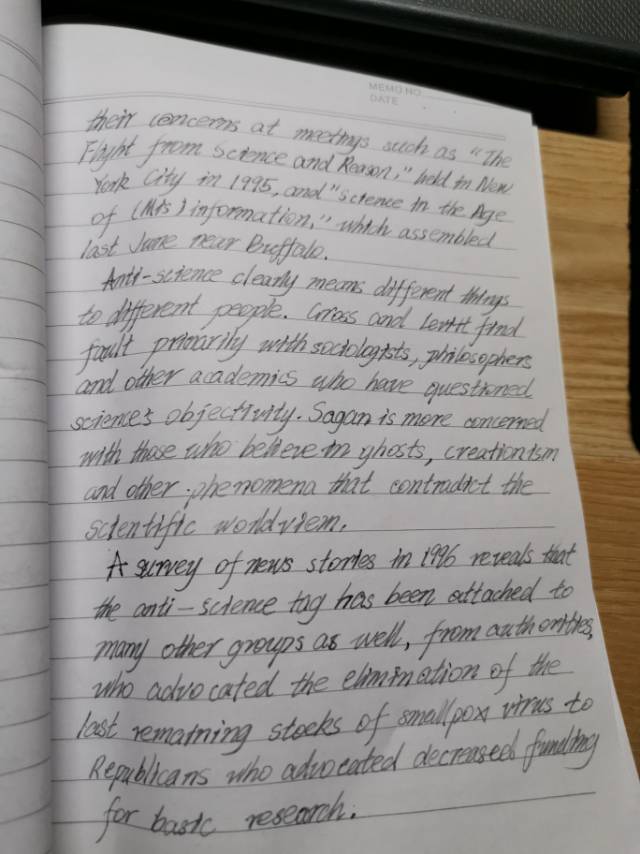 MEMO NO.
DATE
their concerns at meetings such as "The
Flight from Science and Reason," held in New
York City in 1995, and "Science in the Age
of (Mis) information," which assembled
last June near Buffalo.
Anti-science clearly means different things
to different people. Gross and Levitt find
fault primarily with sociologists, philosophers
and other academics who have questioned
science's objectivity. Sagan is more concerned
with those who believe in ghosts, creationism
and other phenomena that contradict the
scientific worldview.
A survey of news stories in 1996 reveals that
the anti-science tag has been attached to
many other groups as well, from authorities,
who advocated the elimination of the
last remaining stocks of smallpox virus to
Republicans who advocated decreased funding
for basic research.